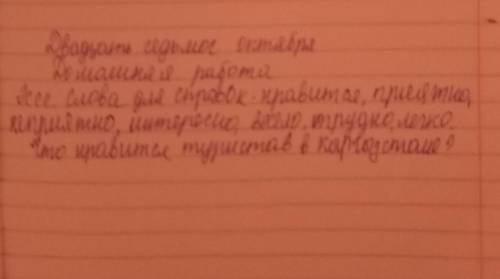 Двадцать седьмое октября
Домашняя работа
Эссе слова для справок: нравится, приятно,
неприятно, интересно, весело, трудно, легко.
Что нравится туристам в Кыргызстане?